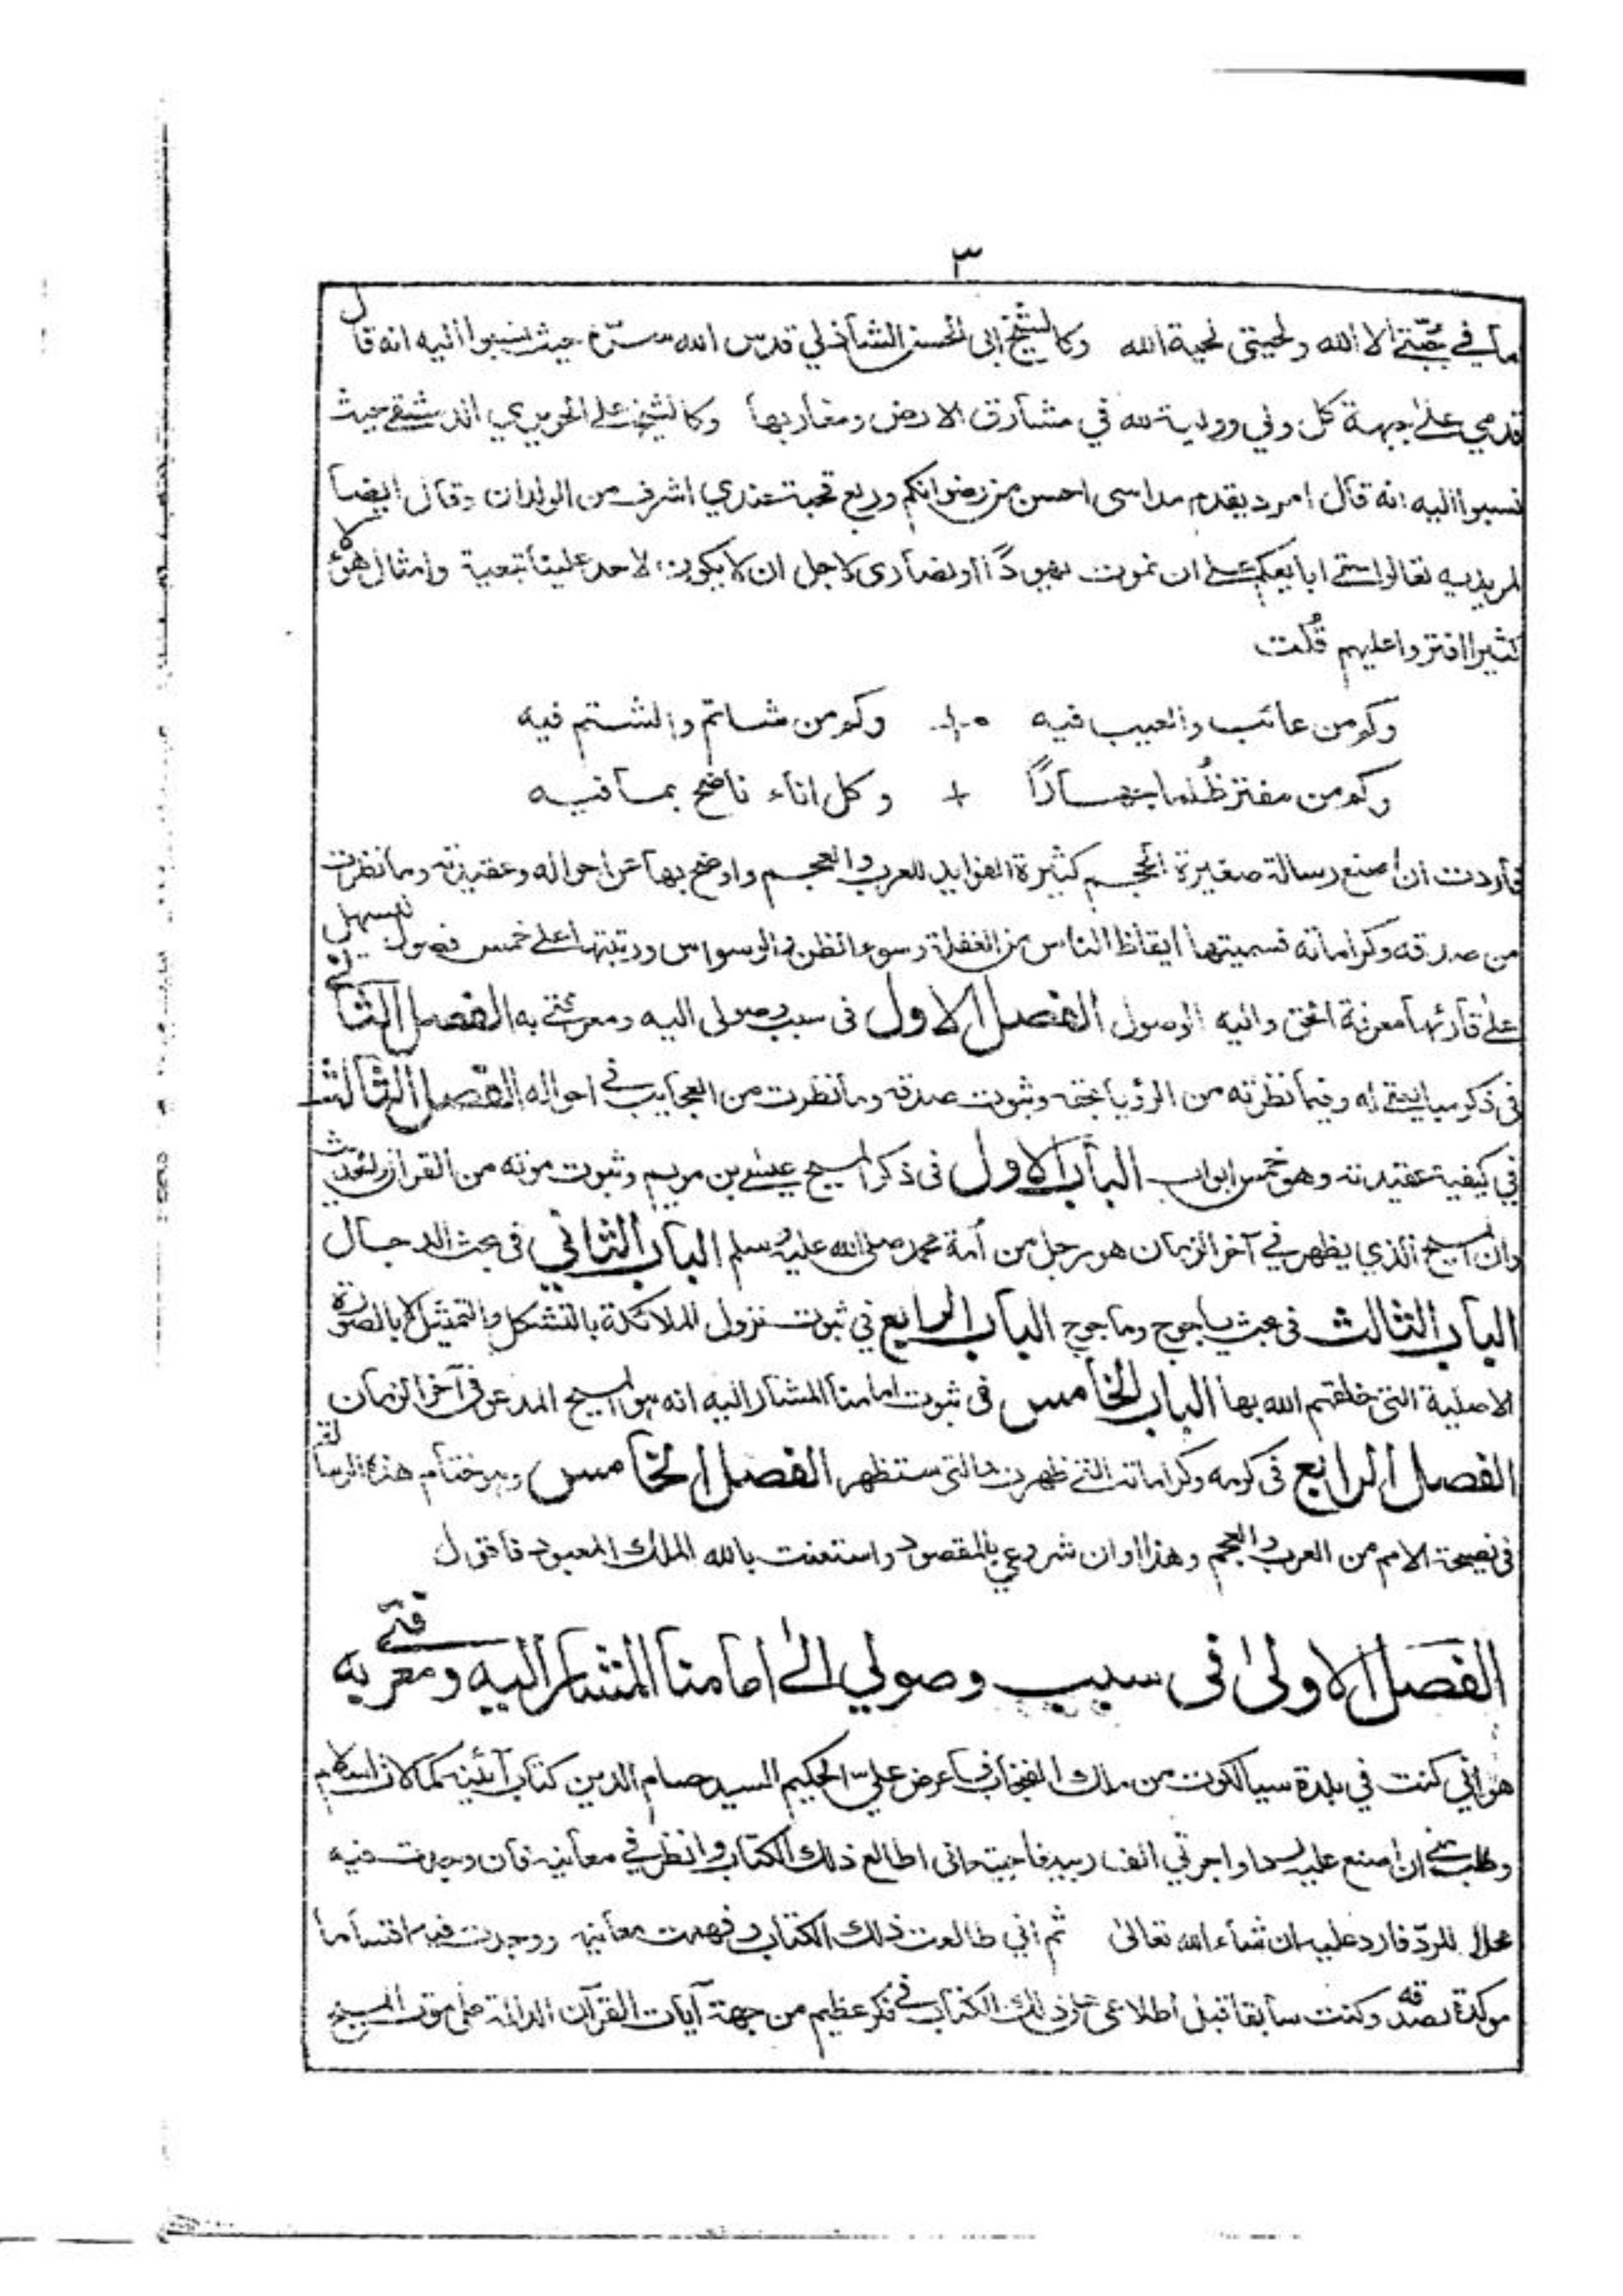 ٣
ما في جُبّتي الا الله ولحيتي لحية الله وكالشيخ ابى الحسن الشاذلي قدس الله سرّه حيث نسبوا اليه انه قال
قدمي على جبهة كل ولي وولية لله في مشارق الارض ومغاربها وكالشيخ على الحريري الدمشقي حيث
نسبوا اليه انه قال امرد يقدم مداسى احسن من رضوانكم وربع قحبة عندي اشرف من الولدان وقال ايضا
لمريديه تعالوا حتى ابايعكم على ان نموت يهودًا او نصارى لاجل ان لا يكون لاحد علينا تبعية وامثال هؤلاء
كثيرا افتروا عليهم قُلت
وكم من عائب والعيب فيه + وكم من شاتم والشتم فيه
وكم من مفتر ظُلما جهارًا + وكل اناء ناضح بما فيه
فاردت ان اصنع رسالة صغيرة الحجم كثيرة الفوايد للعرب والعجم واوضح بها عن احواله وعقيدته وما نظرت
من صدقه وكراماته فسميتها ايقاظ الناس من الغفلة وسوء الظن والوسواس ورتبتها على خمس فصول ليسهل
على قارئها معرفة الحق واليه الوصول الفصل الاول فى سبب وصولى اليه ومعرفتي به الفصل الثاني
فى ذكر مبايعتي له وفيما نظرته من الرؤيا بحقه وثبوت صدقه وما نظرت من العجايب في احواله الفصل الثالث
في كيفية عقيدته وهو خمس ابواب الباب الاول فى ذكر المسيح عيسى بن مريم وثبوت موته من القرآن والحديث
وان المسيح الذي يظهر في آخر الزمان هو رجل من أمة محمد صلى الله عليه وسلم الباب الثاني فى بحث الدجال
الباب الثالث فى بحث ياجوج وماجوج الباب الرابع في ثبوت نزول الملائكة بالتشكل والتمثيل لا بالصورة
الاصلية التى خلقهم الله بها الباب الخامس فى ثبوت امامنا المشار اليه انه هو المسيح المدعو فى آخر الزمان
الفصل الرابع فى كرمه وكراماته التى ظهرت والتى ستظهر الفصل الخامس وهو ختام هذه الرسالة
فى نصيحة الامم من العرب والعجم وهذا اوان شروعي بالمقصود واستعنت بالله الملك المعبود فاقول
الفصل الاولى فى سبب وصولي الى امامنا المشار اليه ومعرفتي به
هو اني كنت في بلدة سيالكوت من ملك الفنجاب فاعرض علي الحكيم السيد حسام الدين كتاب آئينه كمالات اسلام
وطلب مني ان اصنع عليه ردا واجرتي الف ربيه فاجبته انى اطالع ذلك الكتاب وانظر في معانيه فان وجدت فيه
محلا للردّ فارد عليه ان شاء الله تعالى ثم اني طالعت ذلك الكتاب وفهمت معانيه ووجدت فيه اقساما
موكدة بصدقه وكنت سابقا قبل اطلاعى على ذلك الكتاب في فكر عظيم من جهة آيات القرآن الدالة على موت المسيح